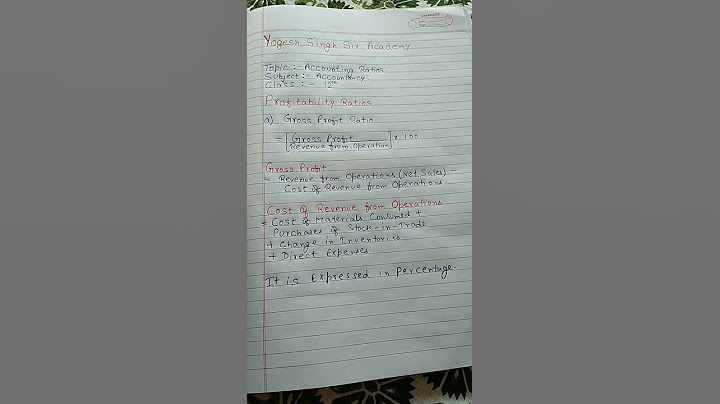 Yogesh Singh Sir Academy
Topic :- Accounting Ratios
Subject :- Accountancy
Class :- 12th
Profitability Ratios
a) Gross Profit Ratio
= [Gross Profit / Revenue from Operation] x 100
Gross Profit
= Revenue from Operations (Net Sales) -
Cost of Revenue from Operations
Cost of Revenue from Operations
= Cost of Materials Consumed +
Purchases of Stock-in-Trade
+ Change in Inventories
+ Direct Expenses
It is Expressed in Percentage.